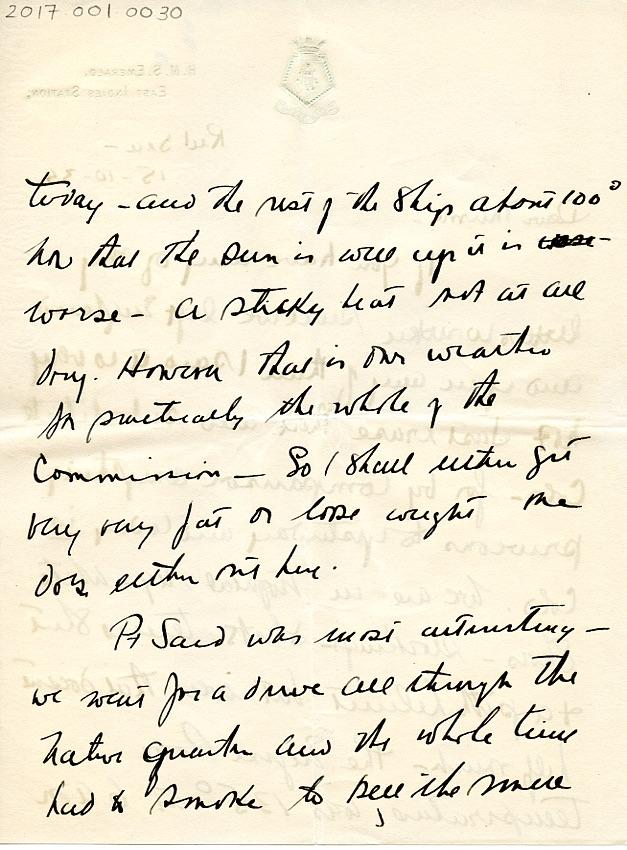 2017.001.0030
today - and the rest of the Ship about 100°
now that the Sun is well up it is
worse - a sticky heat not at all
dry. However that is our weather
for practically the whole of the
Commission - So I shall either get
very very fat or lose weight one
does either out here.
Pt Said was most interesting -
we went for a drive all through the
native quarter and the whole time
had to smoke to keep the smell